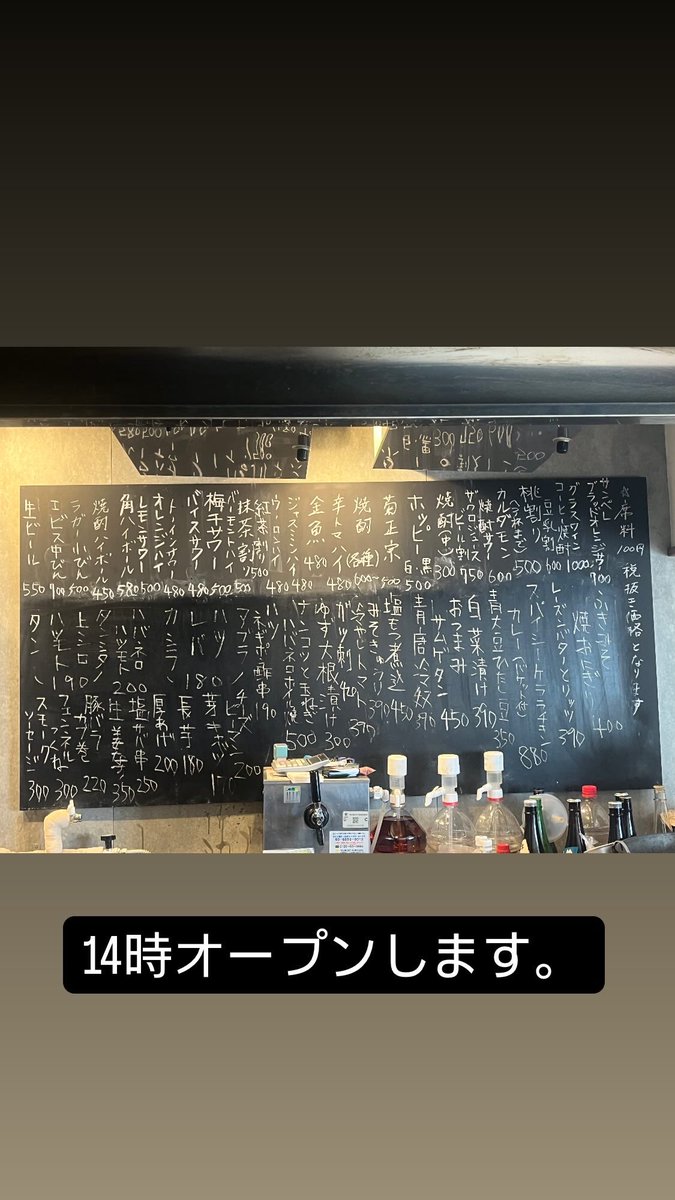 ☆席料100円 税抜き価格となります
サンペレ
ブラッドオレンジ 700
グラスワイン 1000
コーヒー焼酎
豆乳割 600
桃割り 500
カルダモン
焼酎サワー 600
ビール割 750
焼酎中 300
ホッピー 白 黒 500
菊正宗 500
焼酎(各種) 600〜
辛トマハイ 480
金魚 480
ジャスミンハイ 480
ウーロンハイ 480
紅茶割り 500
抹茶割り 500
バーモントハイ 500
梅干サワー 500
バイスサワー 480
トマトサワー 480
オレンジハイ 480
レモンサワー 500
角ハイボール 580
焼酎ハイボール 450
ラガー小びん 500
エビス中びん 700
生ビール 550
ふきみそ
焼おにぎり 400
レーズンバターとリッツ 390
スパイシーケララチキン
カレー(バゲット付) 880
青大豆ひたし豆 350
白菜漬け 390
おつまみ
サムゲタン 450
青唐冷奴 390
塩もつ煮込 450
みそきゅうり 390
冷やしトマト 390
ガツ刺 420
ゆず大根漬け 300
ナンコツと玉ねぎ
ハバネロオイル焼 500
ネギポン酢串 190
ハツ
アブラ
ハツ
レバ 180
カシラ
ハバネロ
ハツモト 200
タンシタノ
上シロ 190
ハツモト
タン
チーズ 200
ピーマン
芽キャベツ
長芋 180
厚あげ 200
塩煮卵串 250
生姜 350
豚バラ
カブ巻 220
フェンネル
つくね 300
スモーク
ソーセージ 300
14時オープンします。